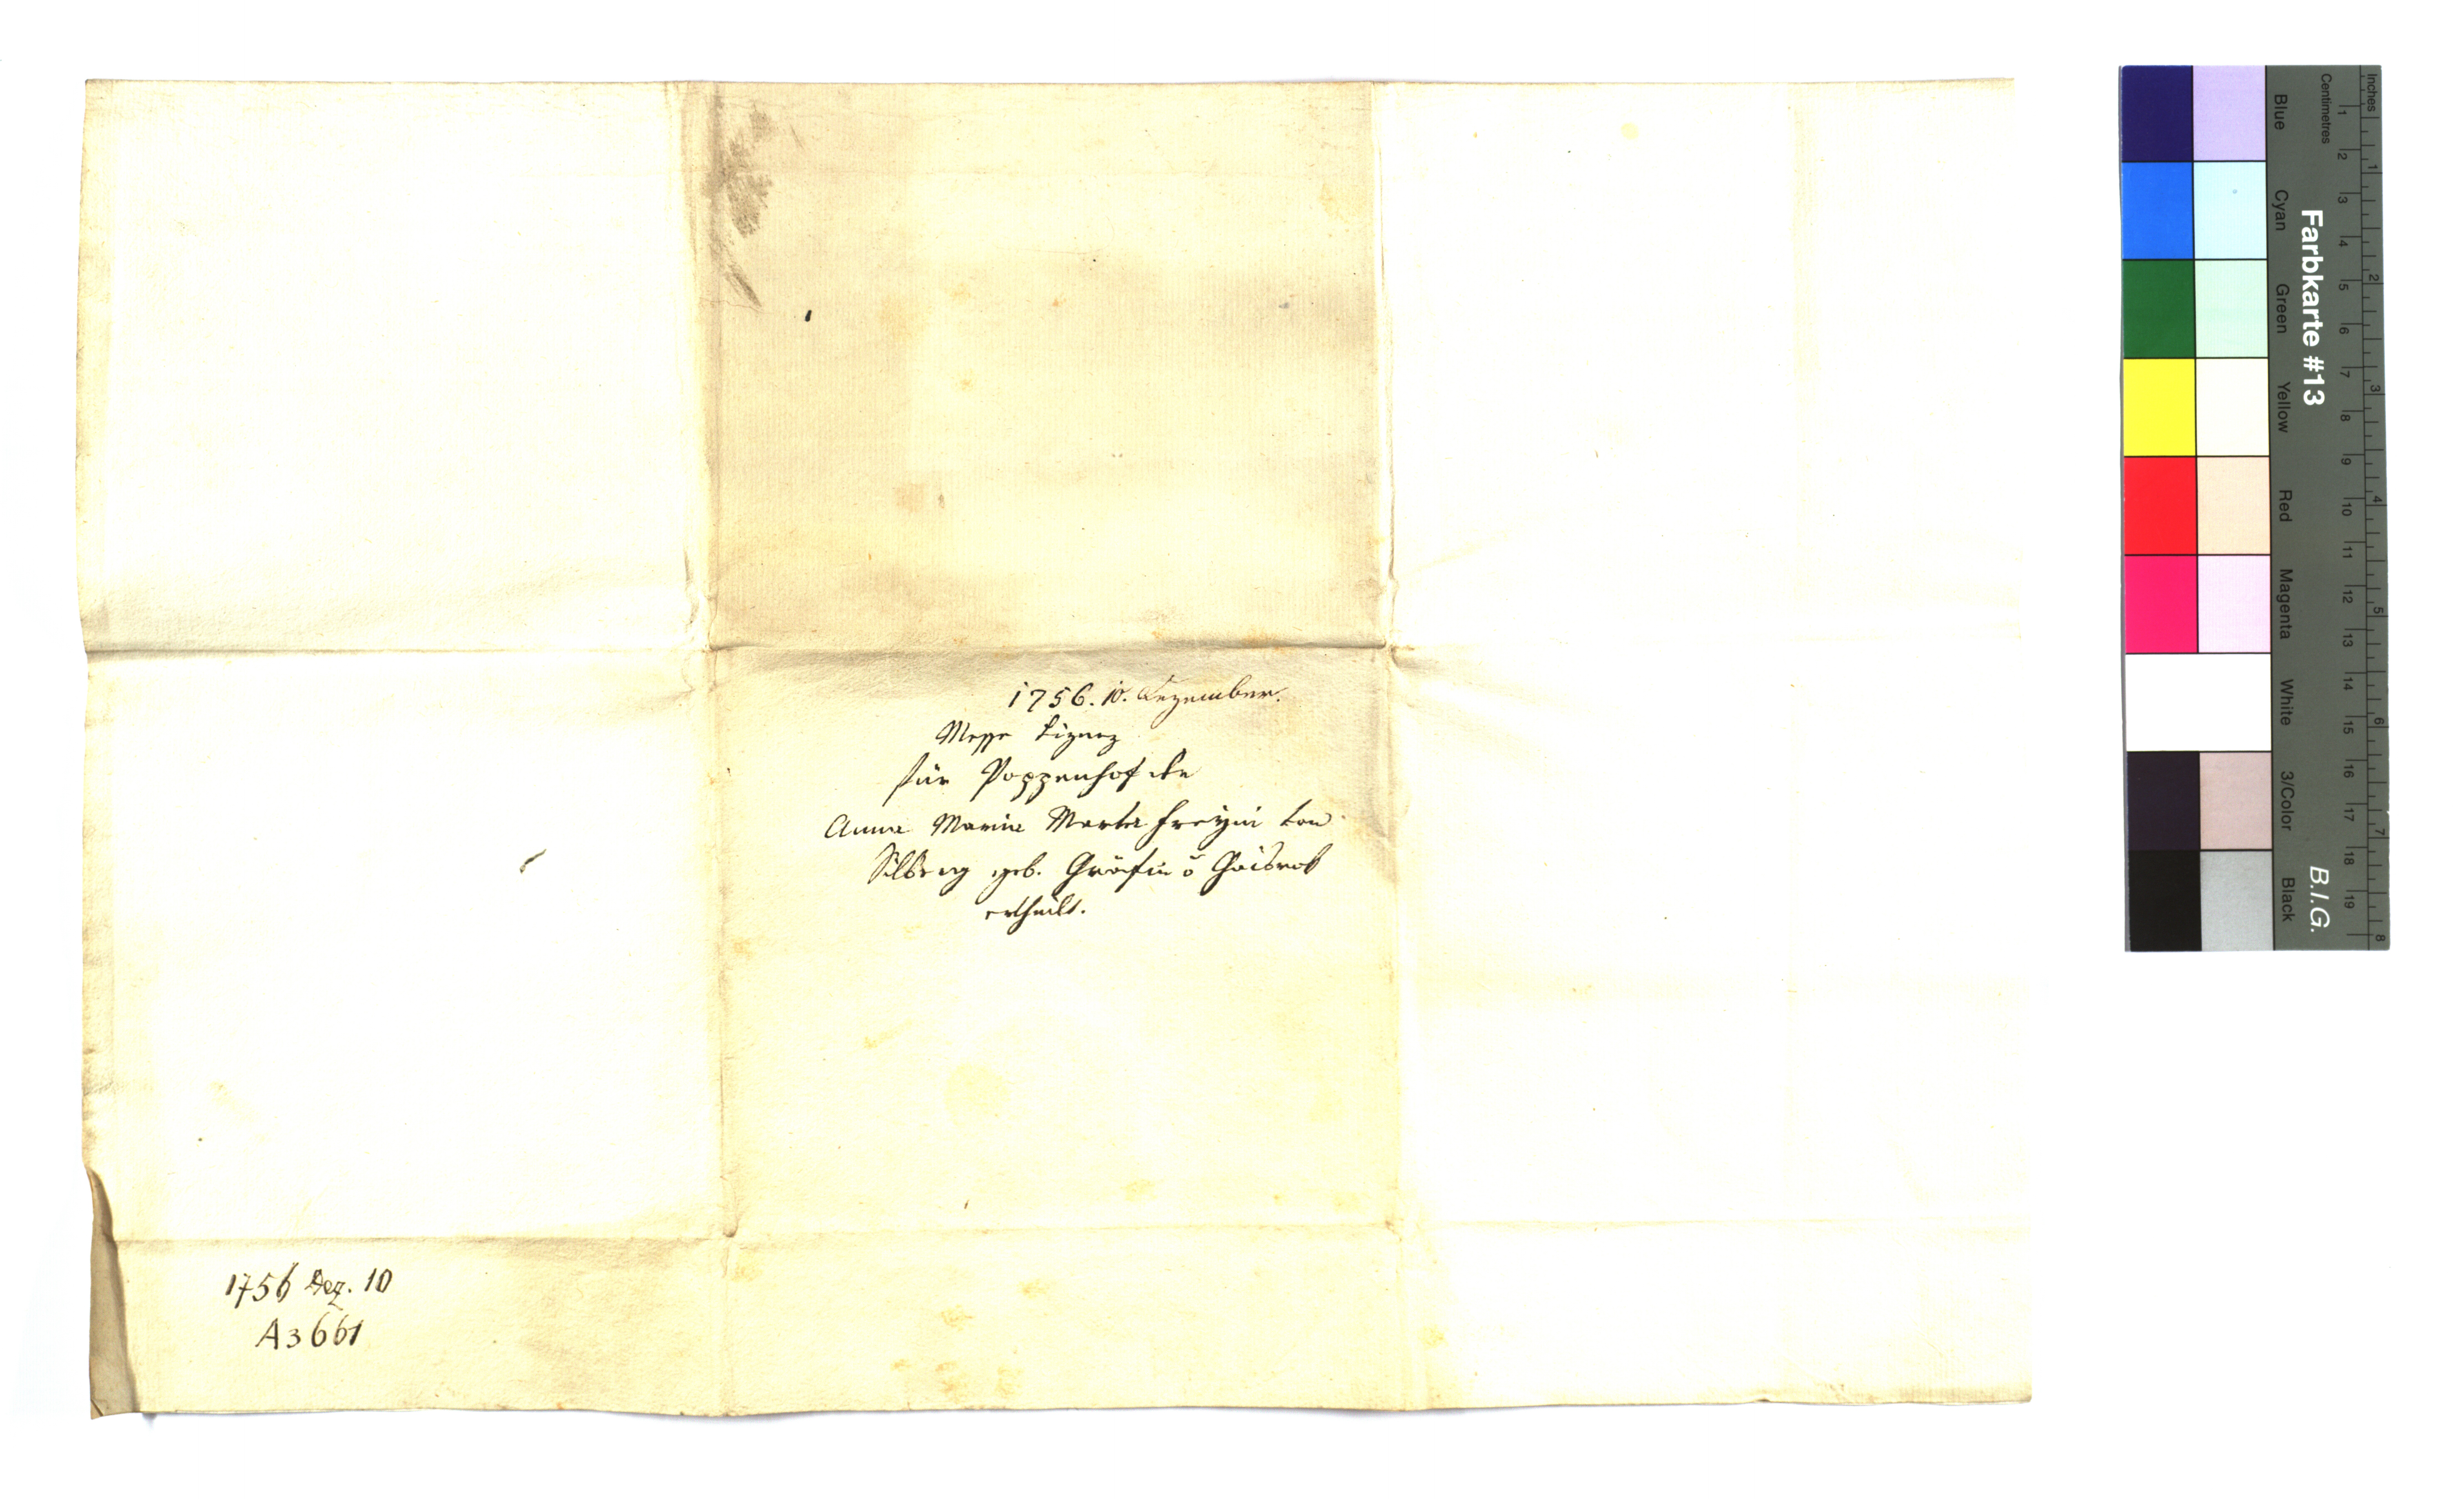 1756. 10. Dezember.
Messe Lizenz
für Poppenhof der
Anna Maria Freyin von
geb. Gräfin v Gaisruk
ertheilt.
1756 Dez. 10
A3661
Inches
Centimetres
1 2 3 4 5 6 7 8
1 2 3 4 5 6 7 8 9 10 11 12 13 14 15 16 17 18 19
Farbkarte #13
B.I.G.
Blue Cyan Green Yellow Red Magenta White 3/Color Black